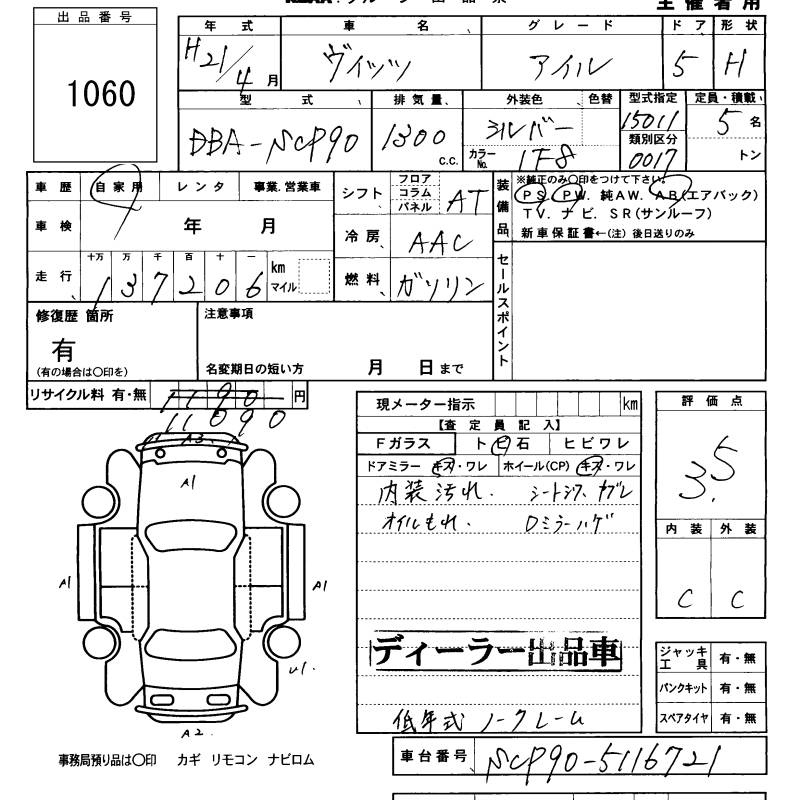 主催者用
出品番号
1060
年式 車名 グレード ドア 形状
H21/4月 ヴィッツ アイル 5 H
型式 排気量 外装色 色替 型式指定 定員・積載
DBA-NCP90 1300 c.c. シルバー カラーNo. 1F8 15011 類別区分 0017 5名 トン
車歴 自家用 レンタ 事業.営業車
車検 年 月
走行 十万 万 千 百 十 一
137206 km マイル
シフト フロア コラム パネル AT
冷房 AAC
燃料 ガソリン
装備品
※純正のみ〇印をつけて下さい。
PS. PW. 純AW. AB(エアバック)
TV. ナビ. SR(サンルーフ)
新車保証書←(注) 後日送りのみ
セールスポイント
修復歴 箇所
有
(有の場合は〇印を)
注意事項
名変期日の短い方 月 日まで
リサイクル料 有・無 円
11090
現メーター指示 km
【査定員記入】
Fガラス トビ石 ヒビワレ
ドアミラー キズ・ワレ ホイール(CP) キズ・ワレ
内装汚れ. シートシワ.
オイルもれ. Dミラーハゲ
ディーラー出品車
低年式 ノークレーム
評価点
3.5
内装 外装
C C
ジャッキ工具 有・無
パンクキット 有・無
スペアタイヤ 有・無
A3
A1
A1
A1
U1.
A2.
事務局預り品は〇印 カギ リモコン ナビロム
車台番号 NCP90-5116721